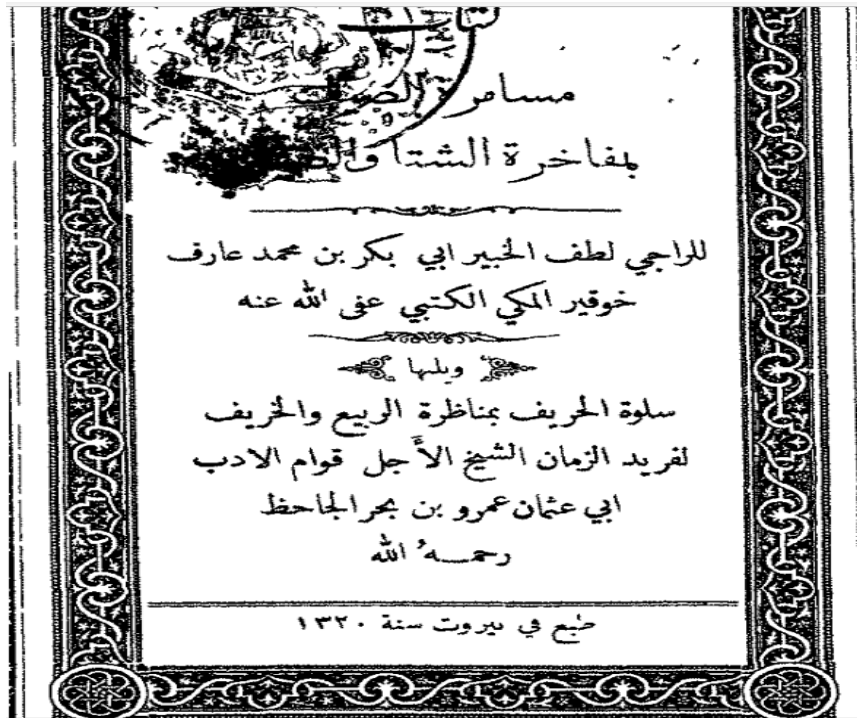 كتاب
مسامرة الضيف
بمفاخرة الشتا والصيف
للراجي لطف الخبير ابي بكر بن محمد عارف
خوقير المكي الكتبي عفى الله عنه
ويليها
سلوة الحريف بمناظرة الربيع والخريف
لفريد الزمان الشيخ الأجل قوام الادب
ابي عثمان عمرو بن بحر الجاحظ
رحمـــهُ الله
طبع في بيروت سنة ١٣٢٠